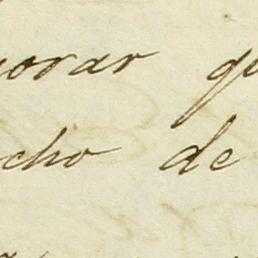 orar qu
cho de